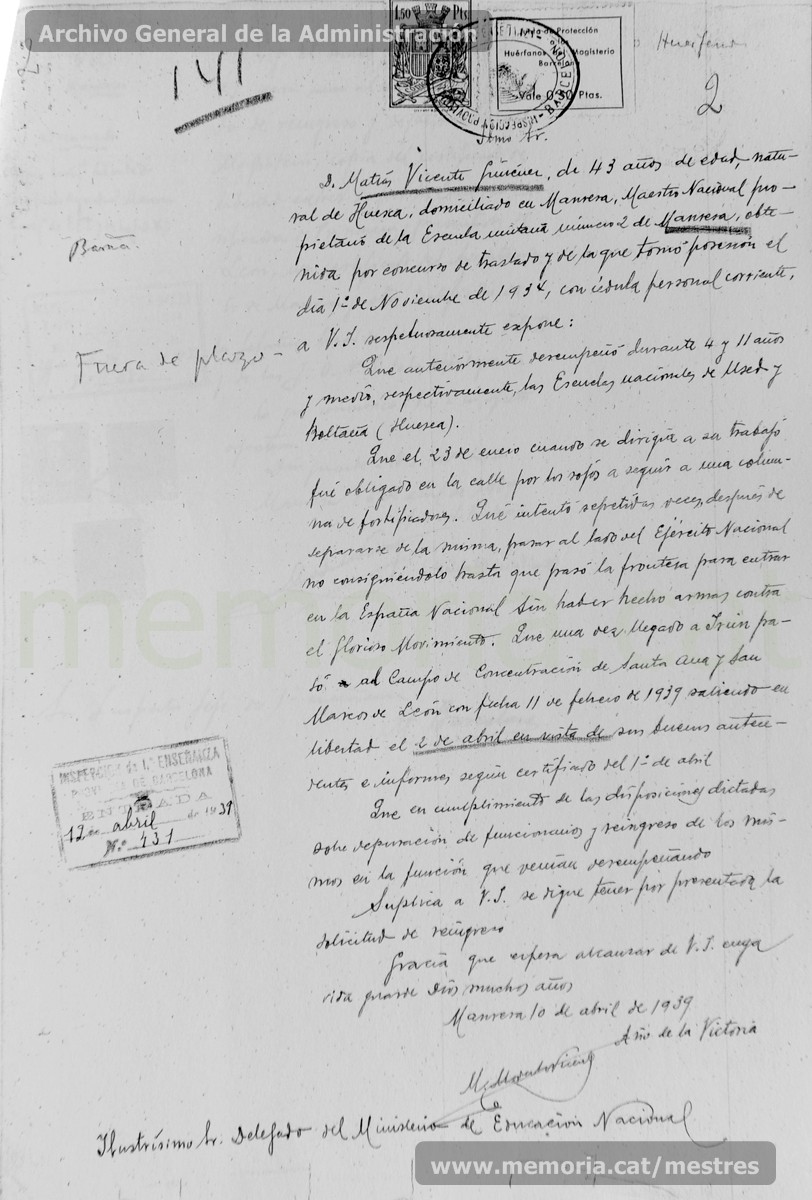 Archivo General de la Administración
1,50 Pts.
Vale 0,50 Ptas.
Huérfanos del Magisterio
Barcelona
141
2
Ilmo Sr.
D. Matías Vicente Giménez, de 43 años de edad, natu-
ral de Huesca, domiciliado en Manresa, Maestro Nacional pro-
pietario de la Escuela unitaria número 2 de Manresa, obte-
nida por concurso de traslado y de la que tomó posesión el
día 1º de Noviembre de 1934, con cédula personal corriente,
a V.I. respetuosamente expone:
Barña.
Fuera de plazo
Que anteriormente desempeñó durante 4 y 11 años
y medio, respectivamente, las Escuelas nacionales de Used y
Boltaña (Huesca).
Que el 23 de enero cuando se dirigía a su trabajo
fué obligado en la calle por los rojos a seguir a una colum-
na de fortificadores. Qué intentó repetidas veces, después de
separarse de la misma, pasar al lado del Ejército Nacional
no consiguiéndolo hasta que pasó la frontera para entrar
en la España Nacional sin haber hecho armas contra
el Glorioso Movimiento. Que una vez llegado a Irún pa-
só al Campo de Concentración de Santa Ana y San
Marcos de León con fecha 11 de febrero de 1939 saliendo en
libertad el 2 de abril en vista de sus buenos antece-
dentes e informes según certificado del 1º de abril
Que en cumplimiento de las disposiciones dictadas
sobre depuración de funcionarios y reingreso de los mis-
mos en la función que venían desempeñando
Suplica a V.I. se digne tener por presentada la
solicitud de reingreso
Gracia que espera alcanzar de V.I. cuya
vida guarde Dios muchos años
Manresa 10 de abril de 1939
Año de la Victoria
INSPECCIÓN de 1.ª ENSEÑANZA
PROVINCIA DE BARCELONA
ENTRADA
12 de abril de 1939
N.º 431
Ilustrísimo Sr. Delegado del Ministerio de Educación Nacional
www.memoria.cat/mestres